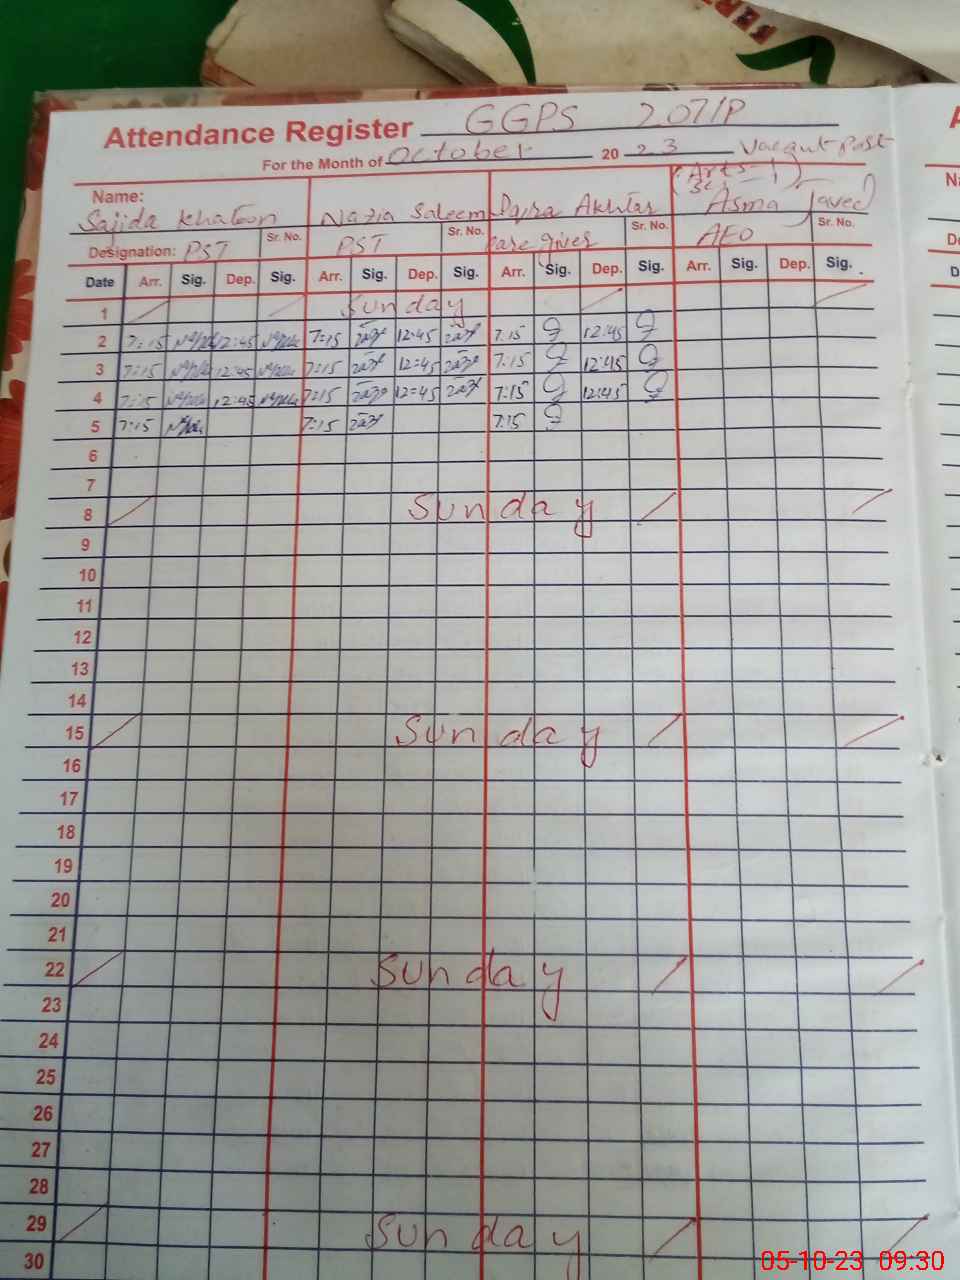 Attendance Register GGPS 207/P
For the Month of October 20 23 Vacant Post
(Arts-1)
Name:
Sajida Khatoon Nazia Saleem Akhtar Asma Javed
Designation: PST Sr. No. PST Sr. No. Care giver Sr. No. AEO Sr. No.
Date Arr. Sig. Dep. Sig. Arr. Sig. Dep. Sig. Arr. Sig. Dep. Sig. Arr. Sig. Dep. Sig.
1 Sunday
2 7:15 12:45 7:15 12:45 7:15 12:45
3 7:15 12:45 7:15 12:45 7:15 12:45
4 7:15 12:45 7:15 12:45 7:15 12:45
5 7:15 7:15 7:15
6
7
8 Sunday
9
10
11
12
13
14
15 Sunday
16
17
18
19
20
21
22 Sunday
23
24
25
26
27
28
29 Sunday
30
05-10-23 09:30